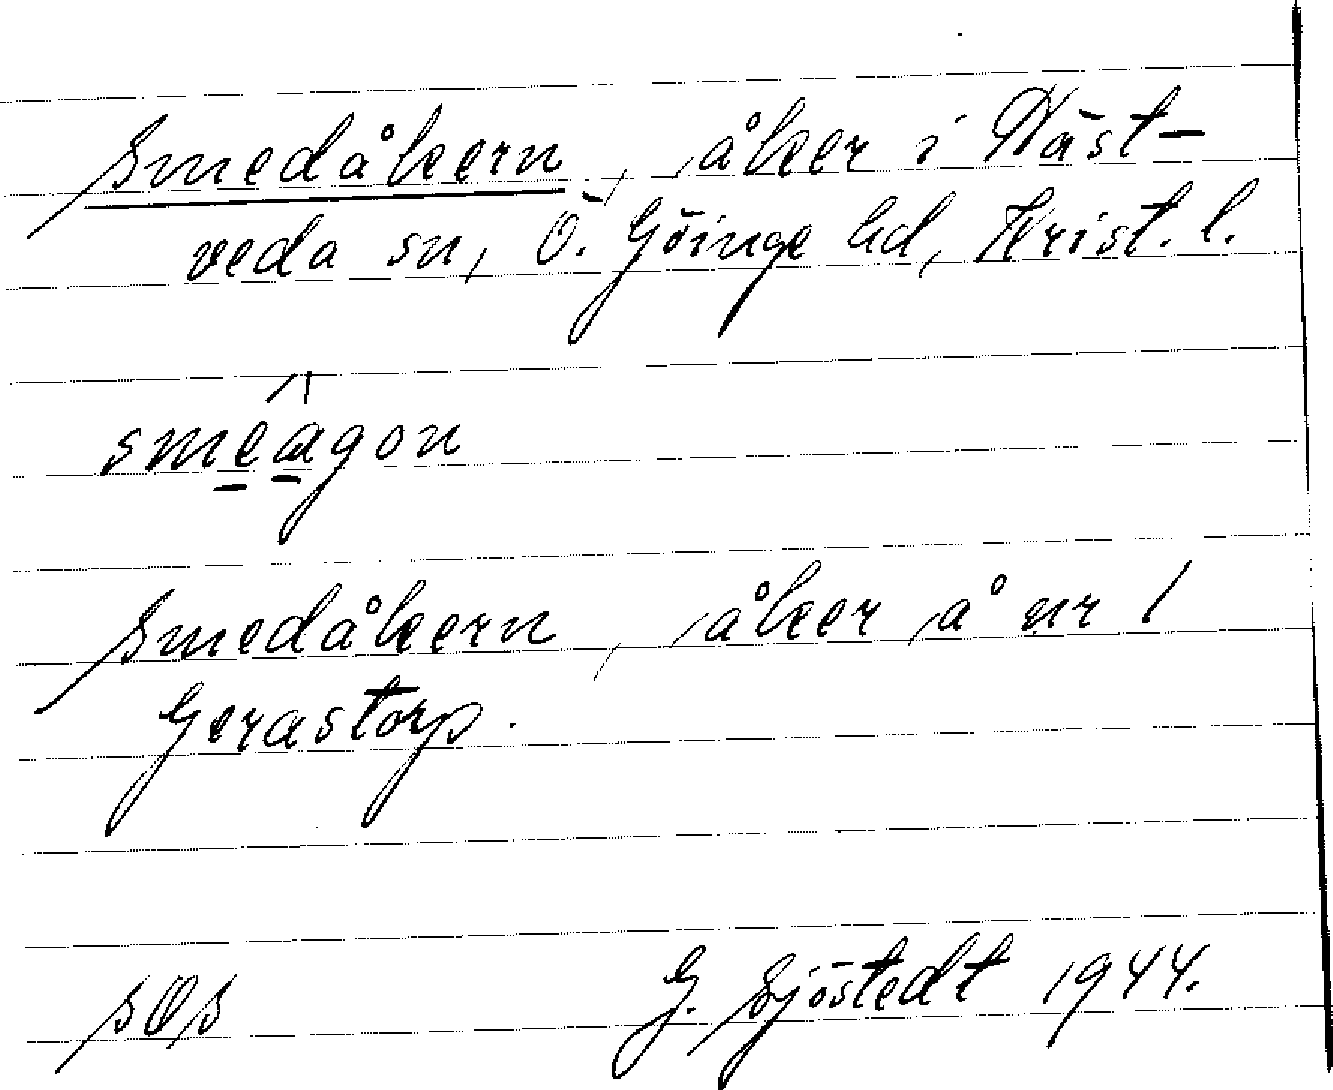 Smedåkern, åker i Näst-
veda sn, Ö. Göinge hd, Krist. l.
smeågon
Smedåkern, åker å nr 1
Gerastorp.
SOS
G. Sjöstedt 1944.